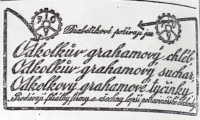 Diabetikové požívají jen
Odkolkův grahamový chléb,
Odkolkův grahamový suchar,
Odkolkovy grahamové tyčinky.
Prodávají filiálky firmy a všechny lepší potravinářské obchody